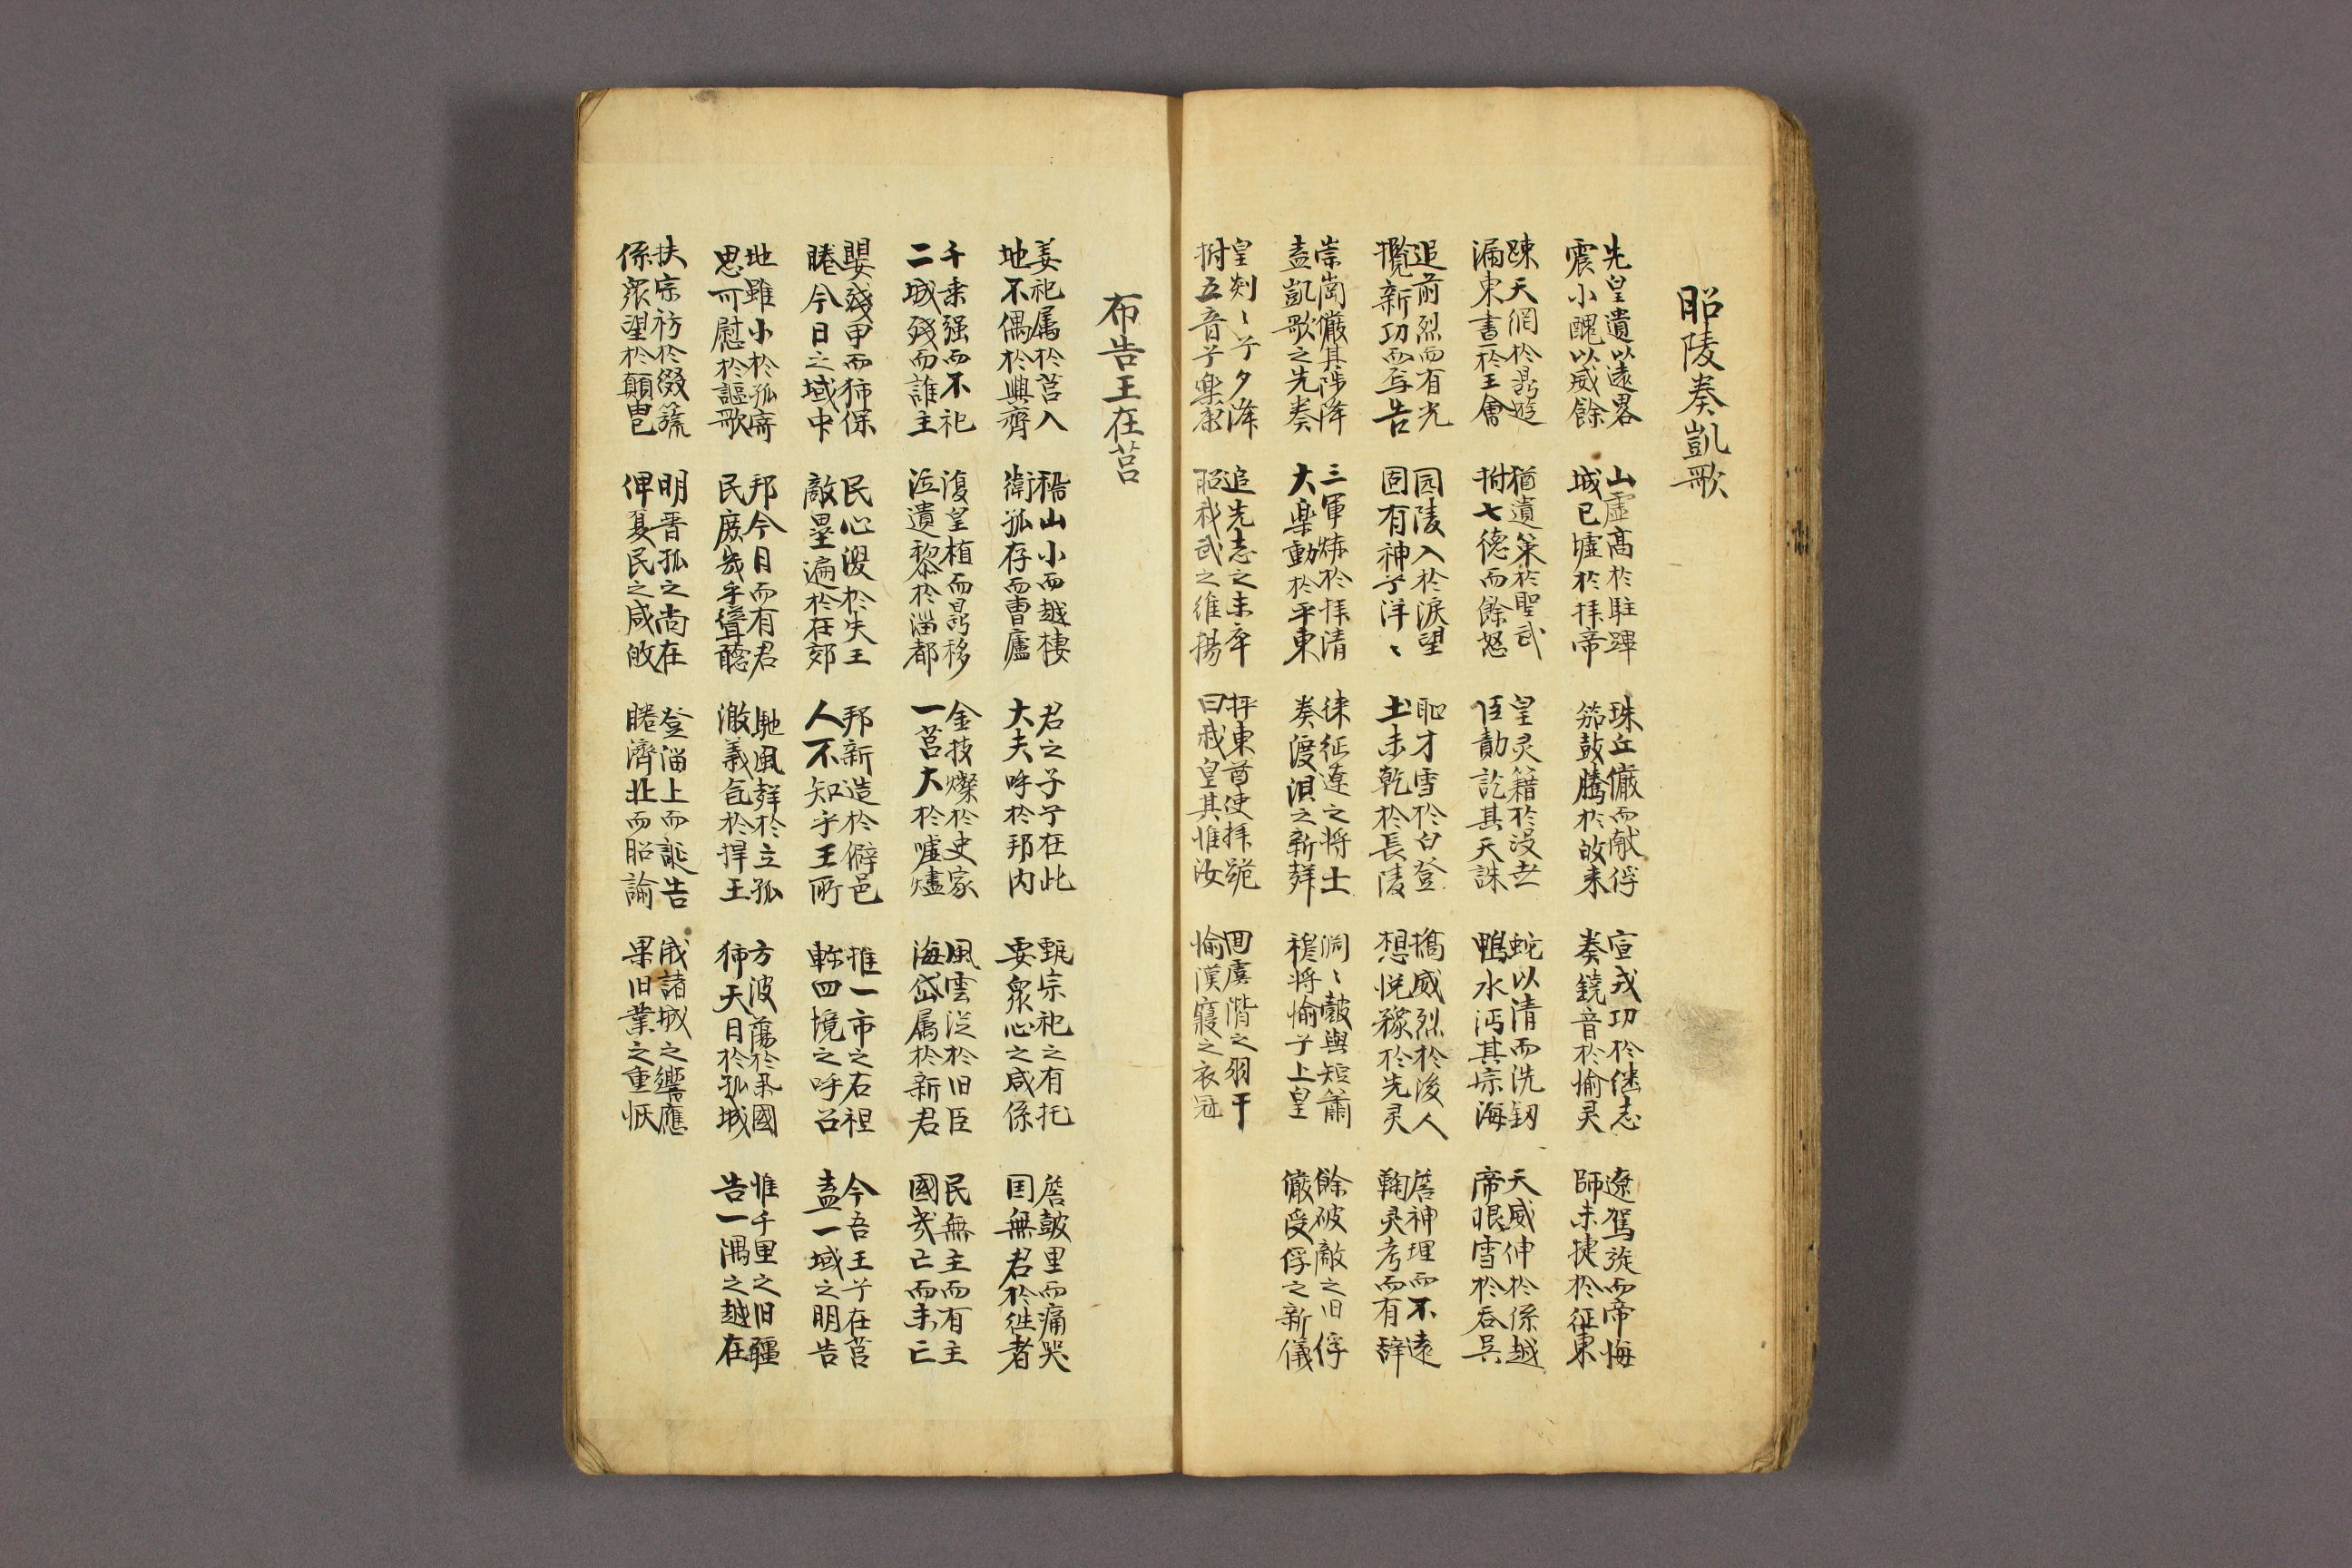 昭陵奏凱歌
先皇遺以遠畧
震小醜以威餘
山虛高於駐蹕
城已墟於拜帝
珠丘儼而献俘
笳鼓騰於故来
宣戎功於継志
奏鐃音於愉灵
遼駕旋而帝悔
師未捷於征東
踈天網於曷遊
漏東書於王會
猶遺策於聖武
拊七德而餘怒
皇灵籍於沒世
臣勣訖其天誅
蛇以清而洗釰
鴨水沔其宗海
天威伸於係越
帝恨雪於吞吳
追前烈而有光
攬新功而写告
园陵入於淚望
固有神兮洋〻
恥才雪於白登
土未乾於長陵
擣威烈於後人
想悅豫於先灵
詹神理而不遠
鞠灵考而有辞
崇崗儼其陟降
盍凱歌之先奏
三軍烋於拜清
大楽動於平東
徕征遼之将士
奏渡浿之新辥
淵〻皷與短簫
禭将愉兮上皇
餘破敵之旧俘
儼受俘之新儀
皇剡〻兮夕降
拊五音兮楽康
追先志之未卒
昭我武之維揚
抨東酋使拜跪
曰我皇其惟汝
囬虞階之羽干
愉漢寢之衣冠
布告王在莒
姜祀属於莒入
地不偶於興齊
嵇山小而越棲
衛孤存而曹廬
君之子兮在此
大夫呼於邦内
甄宗祀之有托
要衆心之咸係
詹皷里而痛哭
囯無君於徃者
千乗强而不祀
二城殘而誰主
復皇植而曷移
泣遺黎於淄都
金枝燦於史家
一莒大於嘘燼
風雲泛於旧臣
海岱属於新君
民無主而有主
國幾亡而未亡
嬰殘甲而狶保
睠今日之域中
民心沒於失王
敵壘遍於在郊
邦新造於僻邑
人不知乎王所
推一市之右袒
軫四境之呼召
今吾王兮在莒
盍一域之明告
地雖小於孤齊
思可慰於謳歌
邦今日而有君
民庶幾乎聳聽
馳風辥於立孤
激義気於捍王
方波蕩於呆國
狶天日於孤城
惟千里之旧疆
告一隅之越在
扶宗祊於綴旒
係衆望於顛皀
明晋孤之尚在
俾夏民之咸故
登淄上而誕告
睠濟北而昭諭
戝諸城之響應
果旧業之重恢